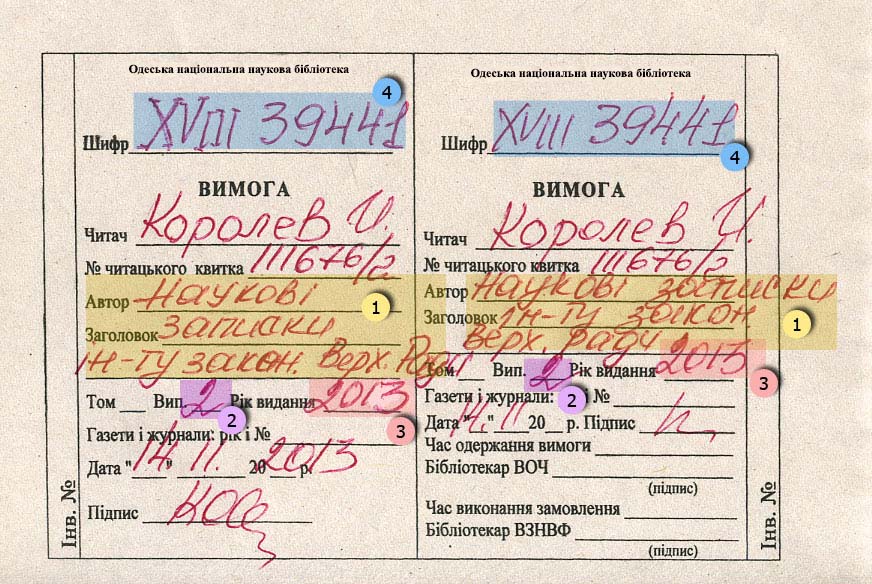 Одеська національна наукова бібліотека
4
Шифр XVIII 39441
ВИМОГА
Читач Королев И.
№ читацького квитка 111676/2
Автор Наукові
1
Заголовок записки
ін-ту закон. Верх. Ради
Том Вип. 2 Рік видання 2013
2
3
Газети і журнали: рік і №
Дата "14" 11. 20 2013 р.
Підпис
Інв. №
Одеська національна наукова бібліотека
Шифр XVIII 39441
4
ВИМОГА
Читач Королев И.
№ читацького квитка 111676/2
Автор Наукові записки
Заголовок ін-ту закон.
1
верх. ради
Том Вип. 2 Рік видання 2013
3
Газети і журнали: 2 і №
Дата "14." 11 20 р. Підпис
Час одержання вимоги
Бібліотекар ВОЧ
(підпис)
Час виконання замовлення
Бібліотекар ВЗНВФ
(підпис)
Інв. №